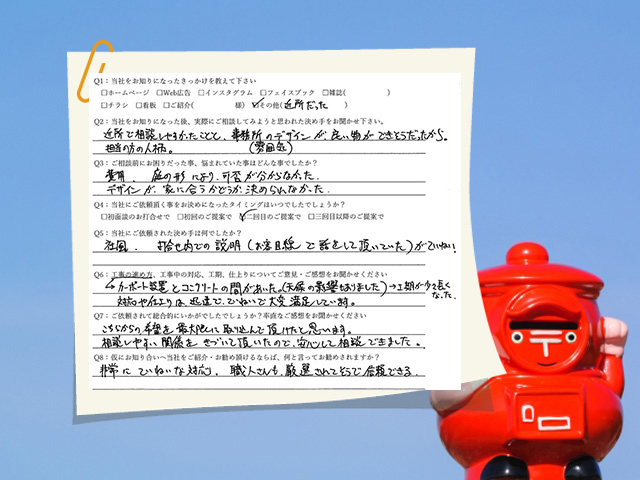 Q1：当社をお知りになったきっかけを教えて下さい
□ホームページ □Web広告 □インスタグラム □フェイスブック □雑誌( )
□チラシ □看板 □ご紹介( 様) ☑その他(近所だった )
Q2：当社をお知りになった後、実際にご相談してみようと思われた決め手をお聞かせ下さい。
近所で相談しやすかったことと、事務所のデザインが、良い物ができそうだったから。
担当の方の人柄。 (雰囲気)
Q3：ご相談前にお困りだった事、悩まれていた事はどんな事でしたか？
費用、庭の形により、可否が分からなかった.
デザインが、家に合うかどうか決められなかった.
Q4：当社にご依頼頂く事をお決めになったタイミングはいつでしたでしょうか？
□初面談のお打合せで □初回のご提案で ☑二回目のご提案で □三回目以降のご提案で
Q5：当社にご依頼された決め手は何でしたか？
社風、打合せ内での説明(お客目線で話をして頂いていた)がていねい
Q6：工事の進め方、工事中の対応、工期、仕上りについてご意見・ご感想をお聞かせください
カーポート設置とコンクリートの間があいた。(天候の影響もありました)→工期が少々長くなった.
対応や仕上りは、迅速で、ていねいで大変満足しています。
Q7：ご依頼されて総合的にいかがでしたでしょうか？率直なご感想をお聞かせください
こちらからの希望を最大限にして取り込んで頂けたと思います。
相談しやすい関係をきづいて頂いたので、安心して相談できました。
Q8：仮にお知り合いへ当社をご紹介・お勧め頂けるならば、何と言ってお勧めされますか？
非常にていねいな対応、職人さんも、厳選されてそうで信頼できる